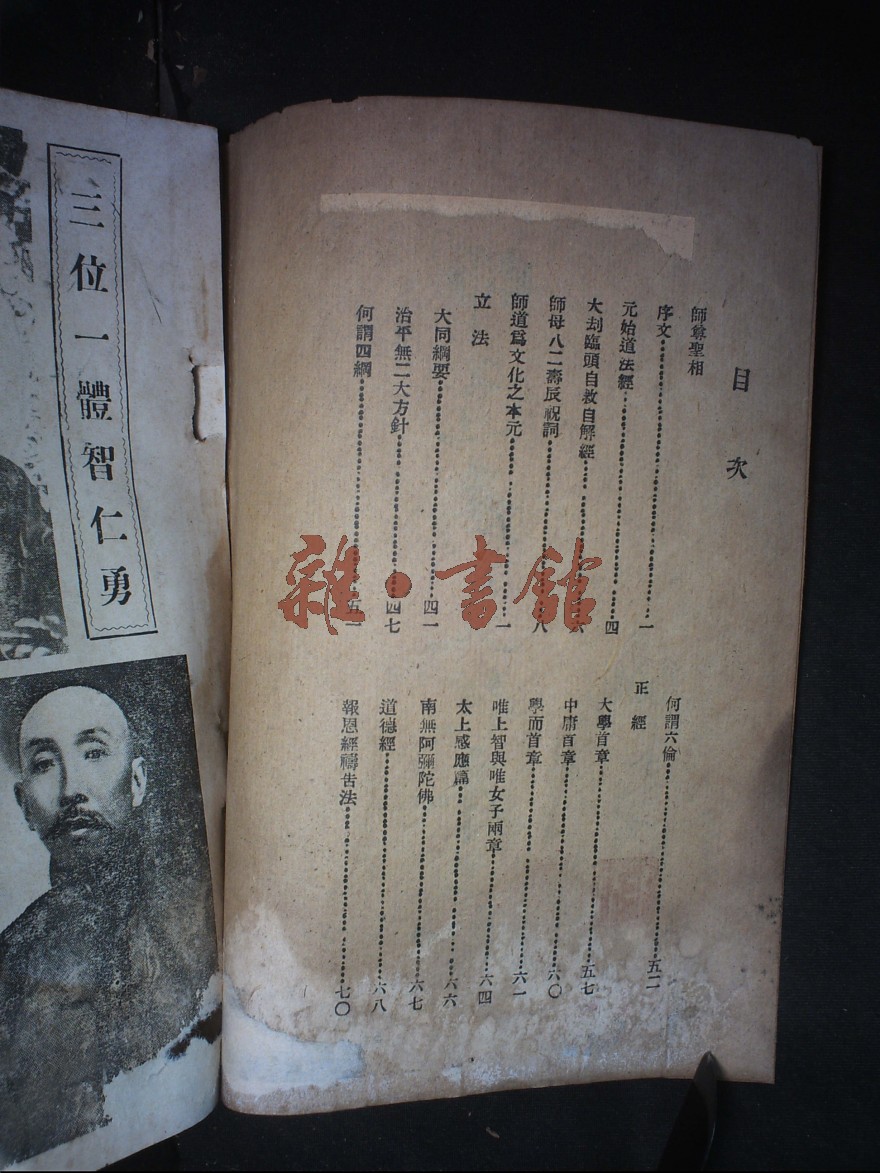 目次
師尊聖相
序文一
元始道法經四
大刦臨頭自救自解經六
師母八二壽辰祝詞八
師道為文化之本元一
立法
大同綱要四一
治平無二大方針四七
何謂四綱五一
何謂六倫五二
正經
大學首章五七
中庸首章六〇
學而首章六一
唯上智與唯女子兩章六四
太上感應篇六六
南無阿彌陀佛六七
道德經六八
報恩經禱告法七〇
三位一體智仁勇
雜·書館